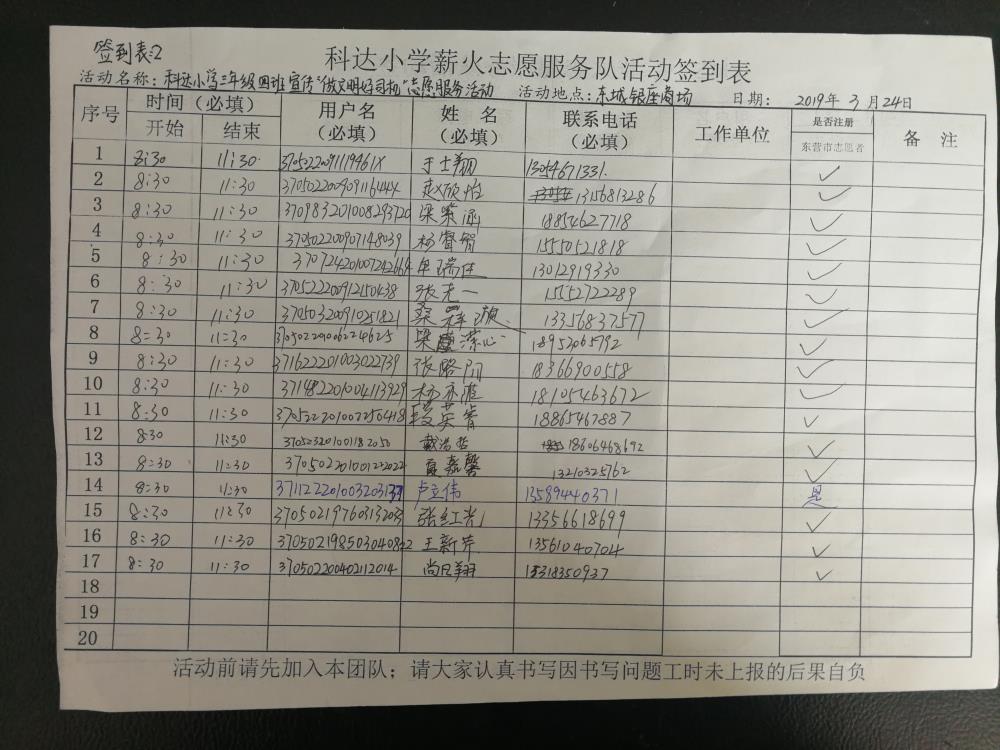 签到表2
科达小学薪火志愿服务队活动签到表
活动名称：科达小学三年级四班宣传"做文明好司机"志愿服务活动 活动地点：东城银座商场 日期：2019年3月24日
序号 时间（必填） 用户名（必填） 姓名（必填） 联系电话（必填） 工作单位 是否注册东营市志愿者 备注
开始 结束
1 8:30 11:30 37050220091119461X 于士翔 13054671331 ✓
2 8:30 11:30 370502200909116444 赵欣怡 13156813286 ✓
3 8:30 11:30 370983201008293720 梁策涵 18854627718 ✓
4 8:30 11:30 370502200907148039 杨睿智 15550521818 ✓
5 8:30 11:30 370724201007242664 瑞佳 13012919330 ✓
6 8:30 11:30 370522200912150438 张光一 15552722289 ✓
7 8:30 11:30 370503200910251821 桑梓 13356837577 ✓
8 8:30 11:30 梁 心 18953065792 ✓
9 8:30 11:30 371622201003022739 张路 18366900558 ✓
10 8:30 11:30 杨亦 18105463672 ✓
11 8:30 11:30 370522201007250418 段英 18865467887 ✓
12 8:30 11:30 370503201001182050 戴浩哲 18606468692 ✓
13 8:30 11:30 嘉馨 13210325762 ✓
14 8:30 11:30 371122201003203137 卢立伟 13589440371 是
15 8:30 11:30 370502197603132033 张红光 13356618699 ✓
16 8:30 11:30 王新芹 13561040704 ✓
17 8:30 11:30 370502200402112014 尚 翔 ✓
18
19
20
活动前请先加入本团队；请大家认真书写因书写问题工时未上报的后果自负